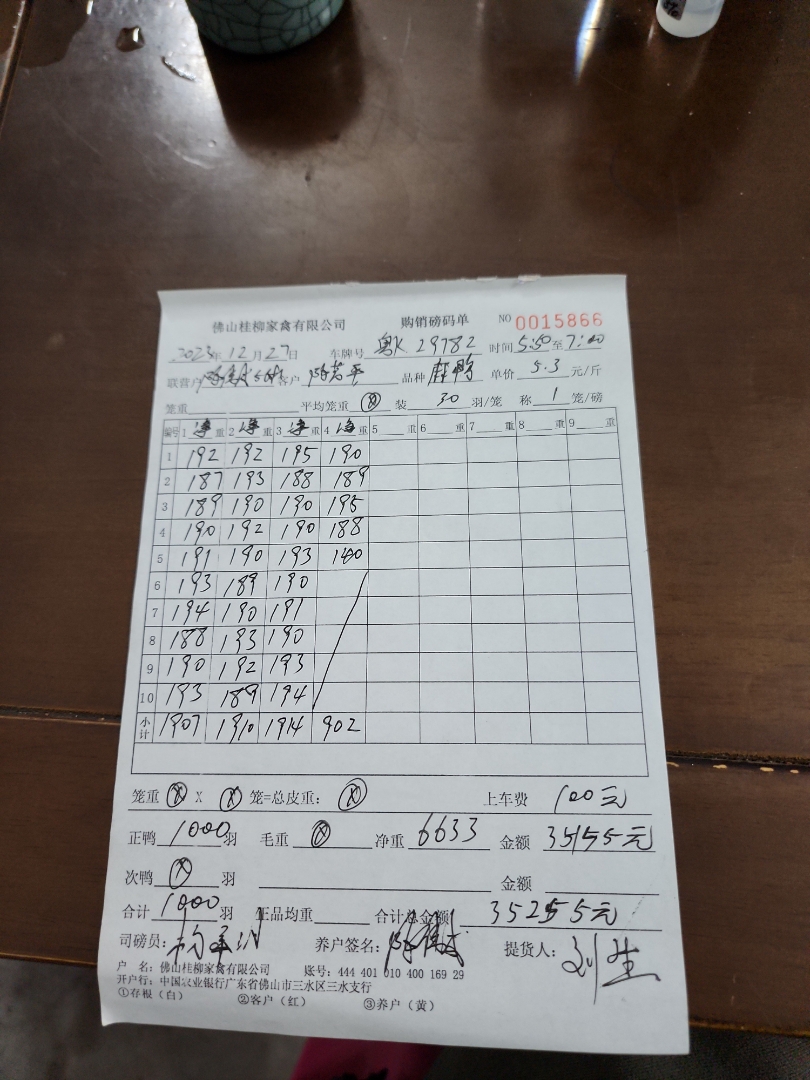 佛山桂柳家禽有限公司 购销磅码单 NO 0015866
2023年12月27日 车牌号 粤K 29782 时间 5:50至7:00
联营户 客户 品种 麻鸭 单价 5.3 元/斤
笼重 平均笼重 ⓧ 装 30 羽/笼 称 1 笼/磅
编号 1 净重 2 净重 3 净重 4 净重 5 重 6 重 7 重 8 重 9 重
1 192 192 195 190
2 187 193 188 189
3 189 190 190 195
4 190 192 190 188
5 191 190 193 140
6 193 189 190
7 194 190 191
8 188 193 190
9 190 192 193
10 193 189 194
小计 1907 1910 1914 902
笼重 ⓧ X ⓧ 笼=总皮重: ⓧ 上车费 100元
正鸭 1000 羽 毛重 ⓧ 净重 6633 金额 35155元
次鸭 ⓧ 羽 金额
合计 1000 羽 正品均重 合计总金额 35255元
司磅员: 养户签名: 提货人: 刘生
户 名: 佛山桂柳家禽有限公司 账号: 444 401 010 400 169 29
开户行: 中国农业银行广东省佛山市三水区三水支行
①存根(白) ②客户(红) ③养户(黄)